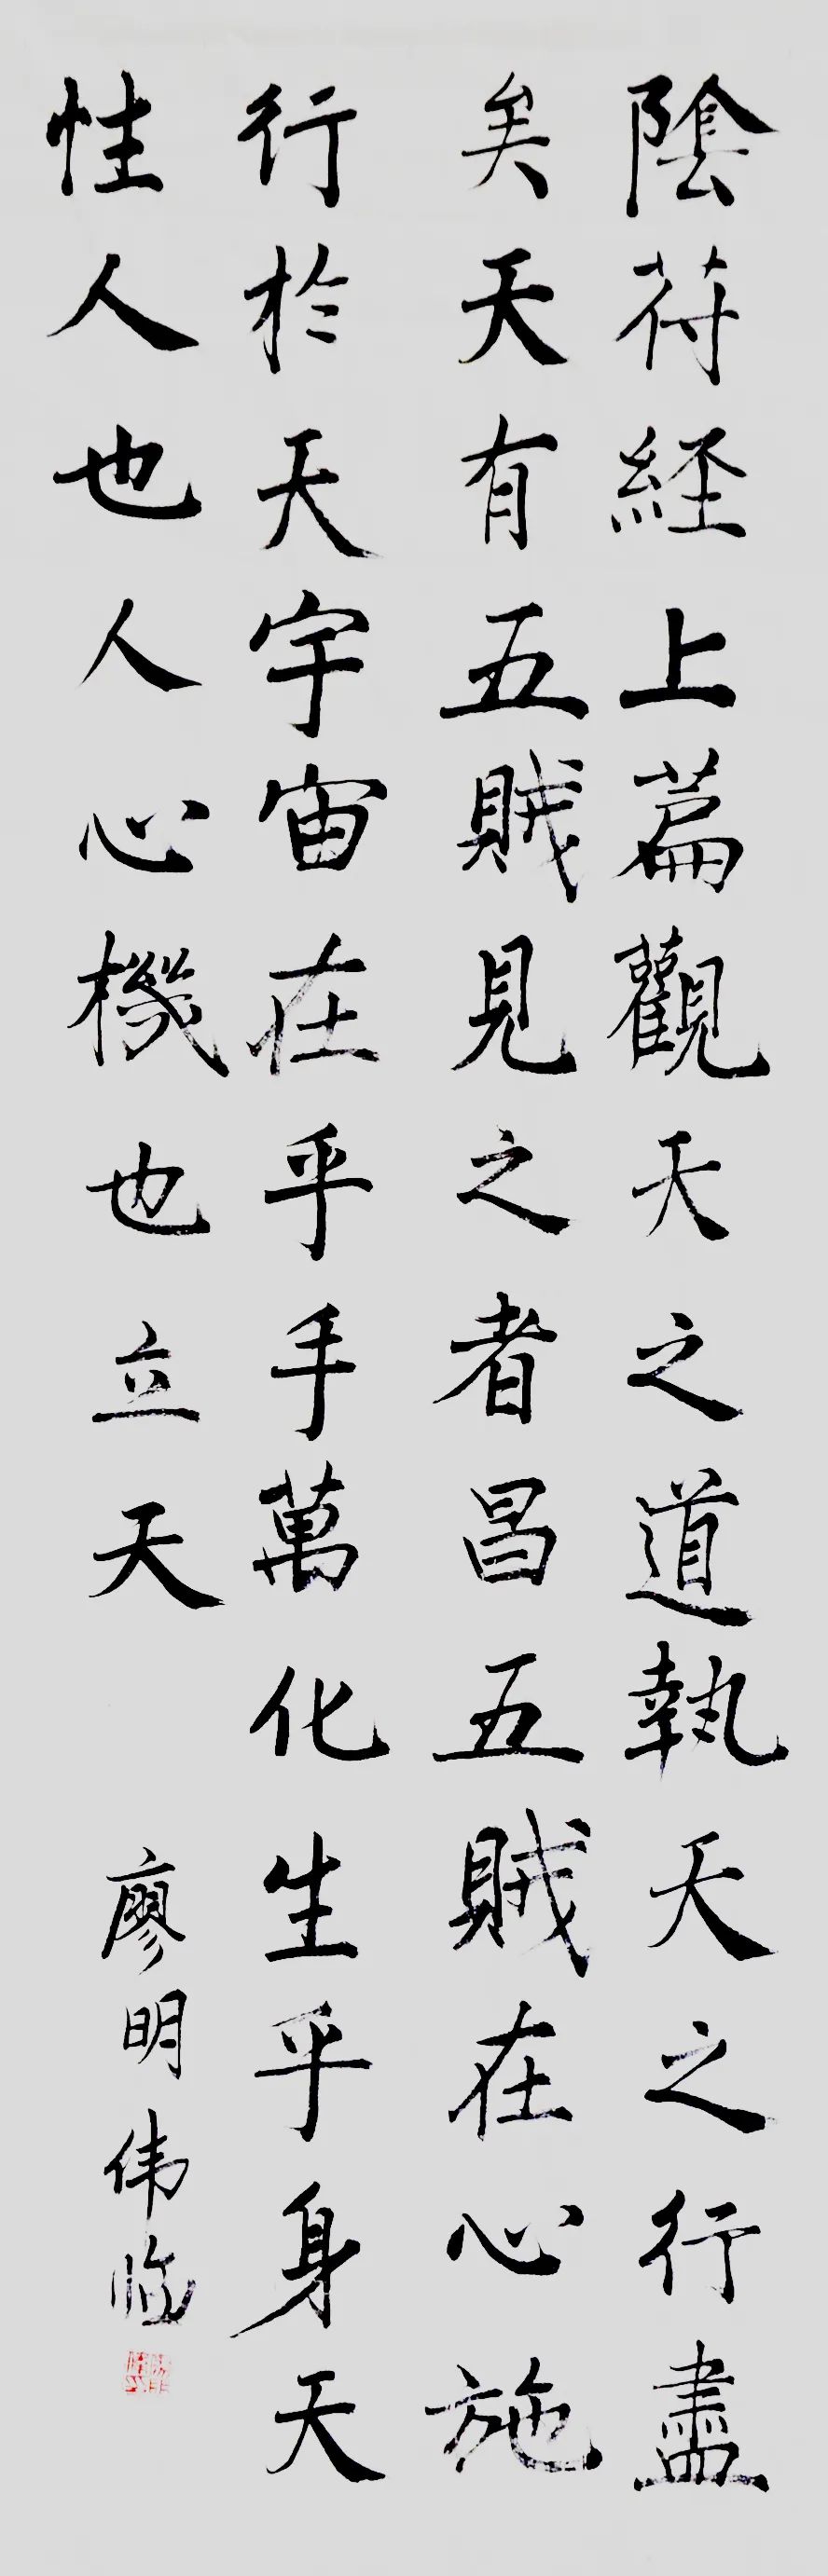 陰符経上篇觀天之道執天之行盡
矣天有五賊見之者昌五賊在心施
行於天宇宙在乎手萬化生乎身天
性人也人心機也立天
廖明伟临